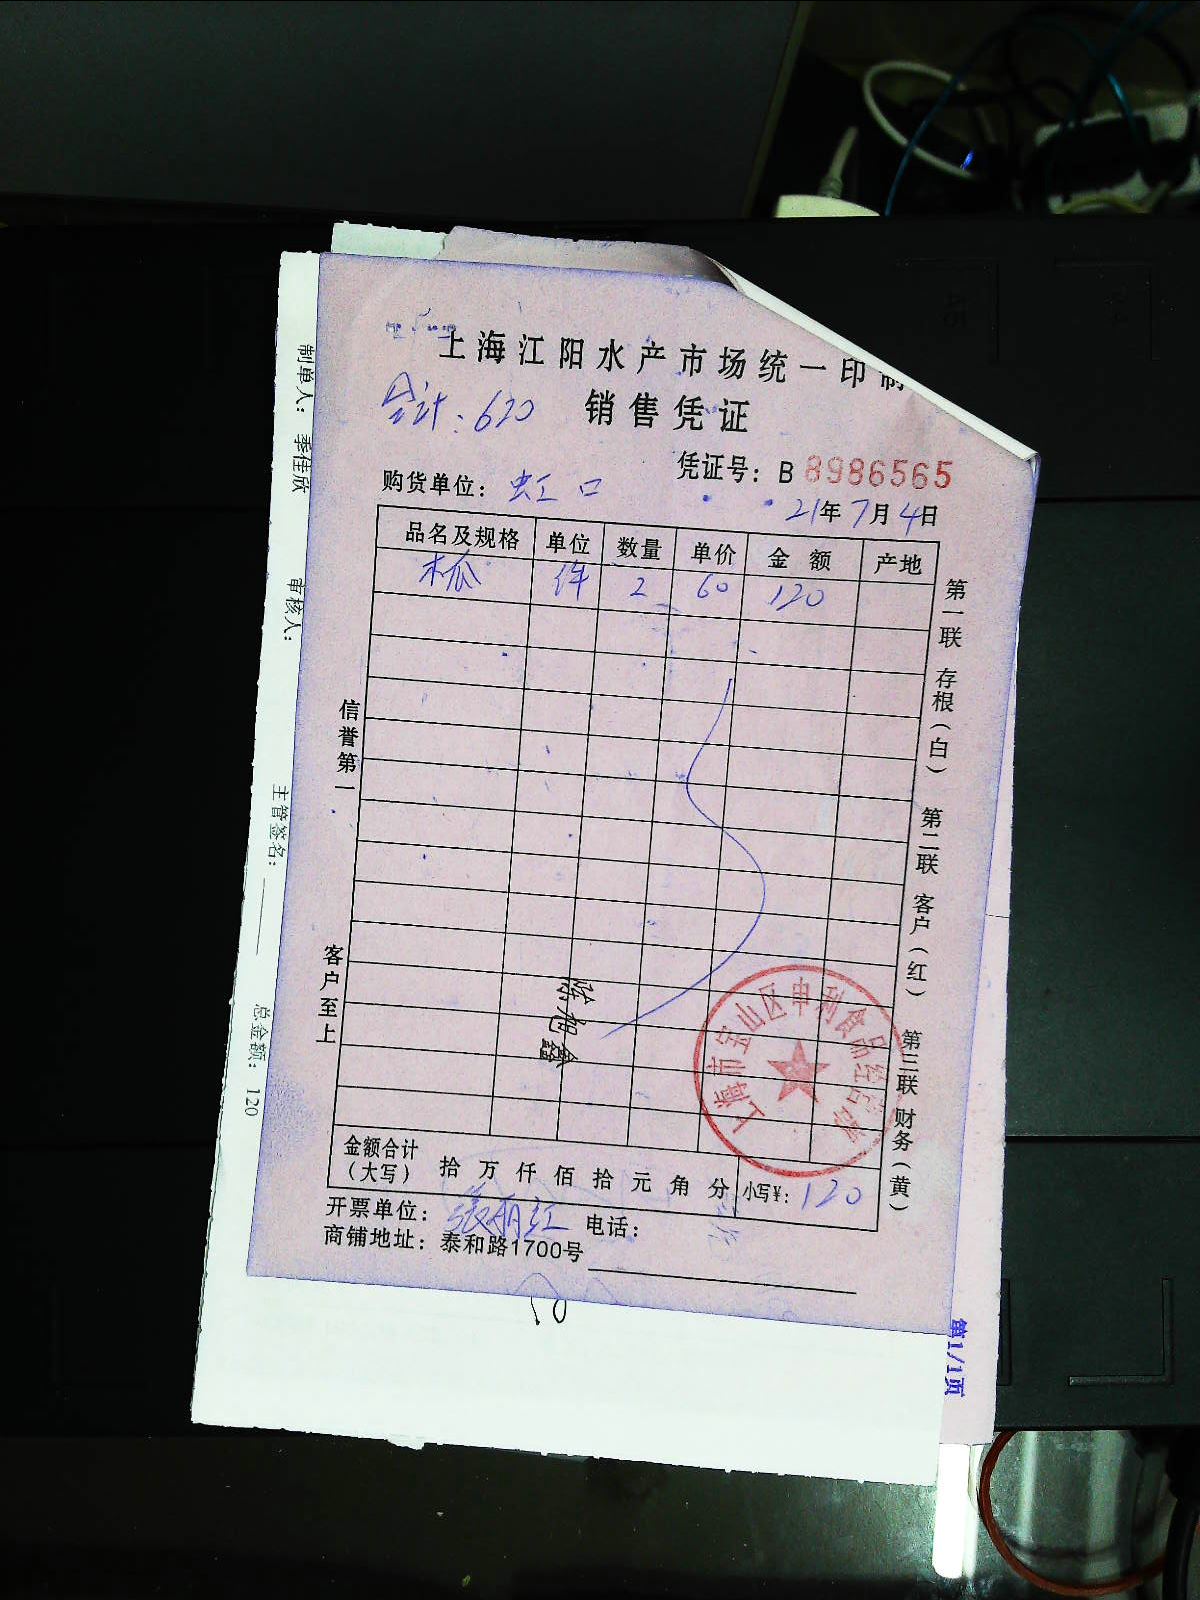 上海江阳水产市场统一印制
合计:620
销售凭证
凭证号:B 8986565
购货单位:虹口
21年7月4日
品名及规格 单位 数量 单价 金额 产地
木瓜 件 2 60 120
信誉第一
客户至上
第一联 存根(白) 第二联 客户(红) 第三联 财务(黄)
徐旭鑫
上海市宝山区申利食品经营部
金额合计(大写) 拾 万 仟 佰 拾 元 角 分 小写¥:120
开票单位:张丽红 电话:
商铺地址:泰和路1700号
制单人:季佳欣 审核人: 主管签名: 总金额:120
第1/1页